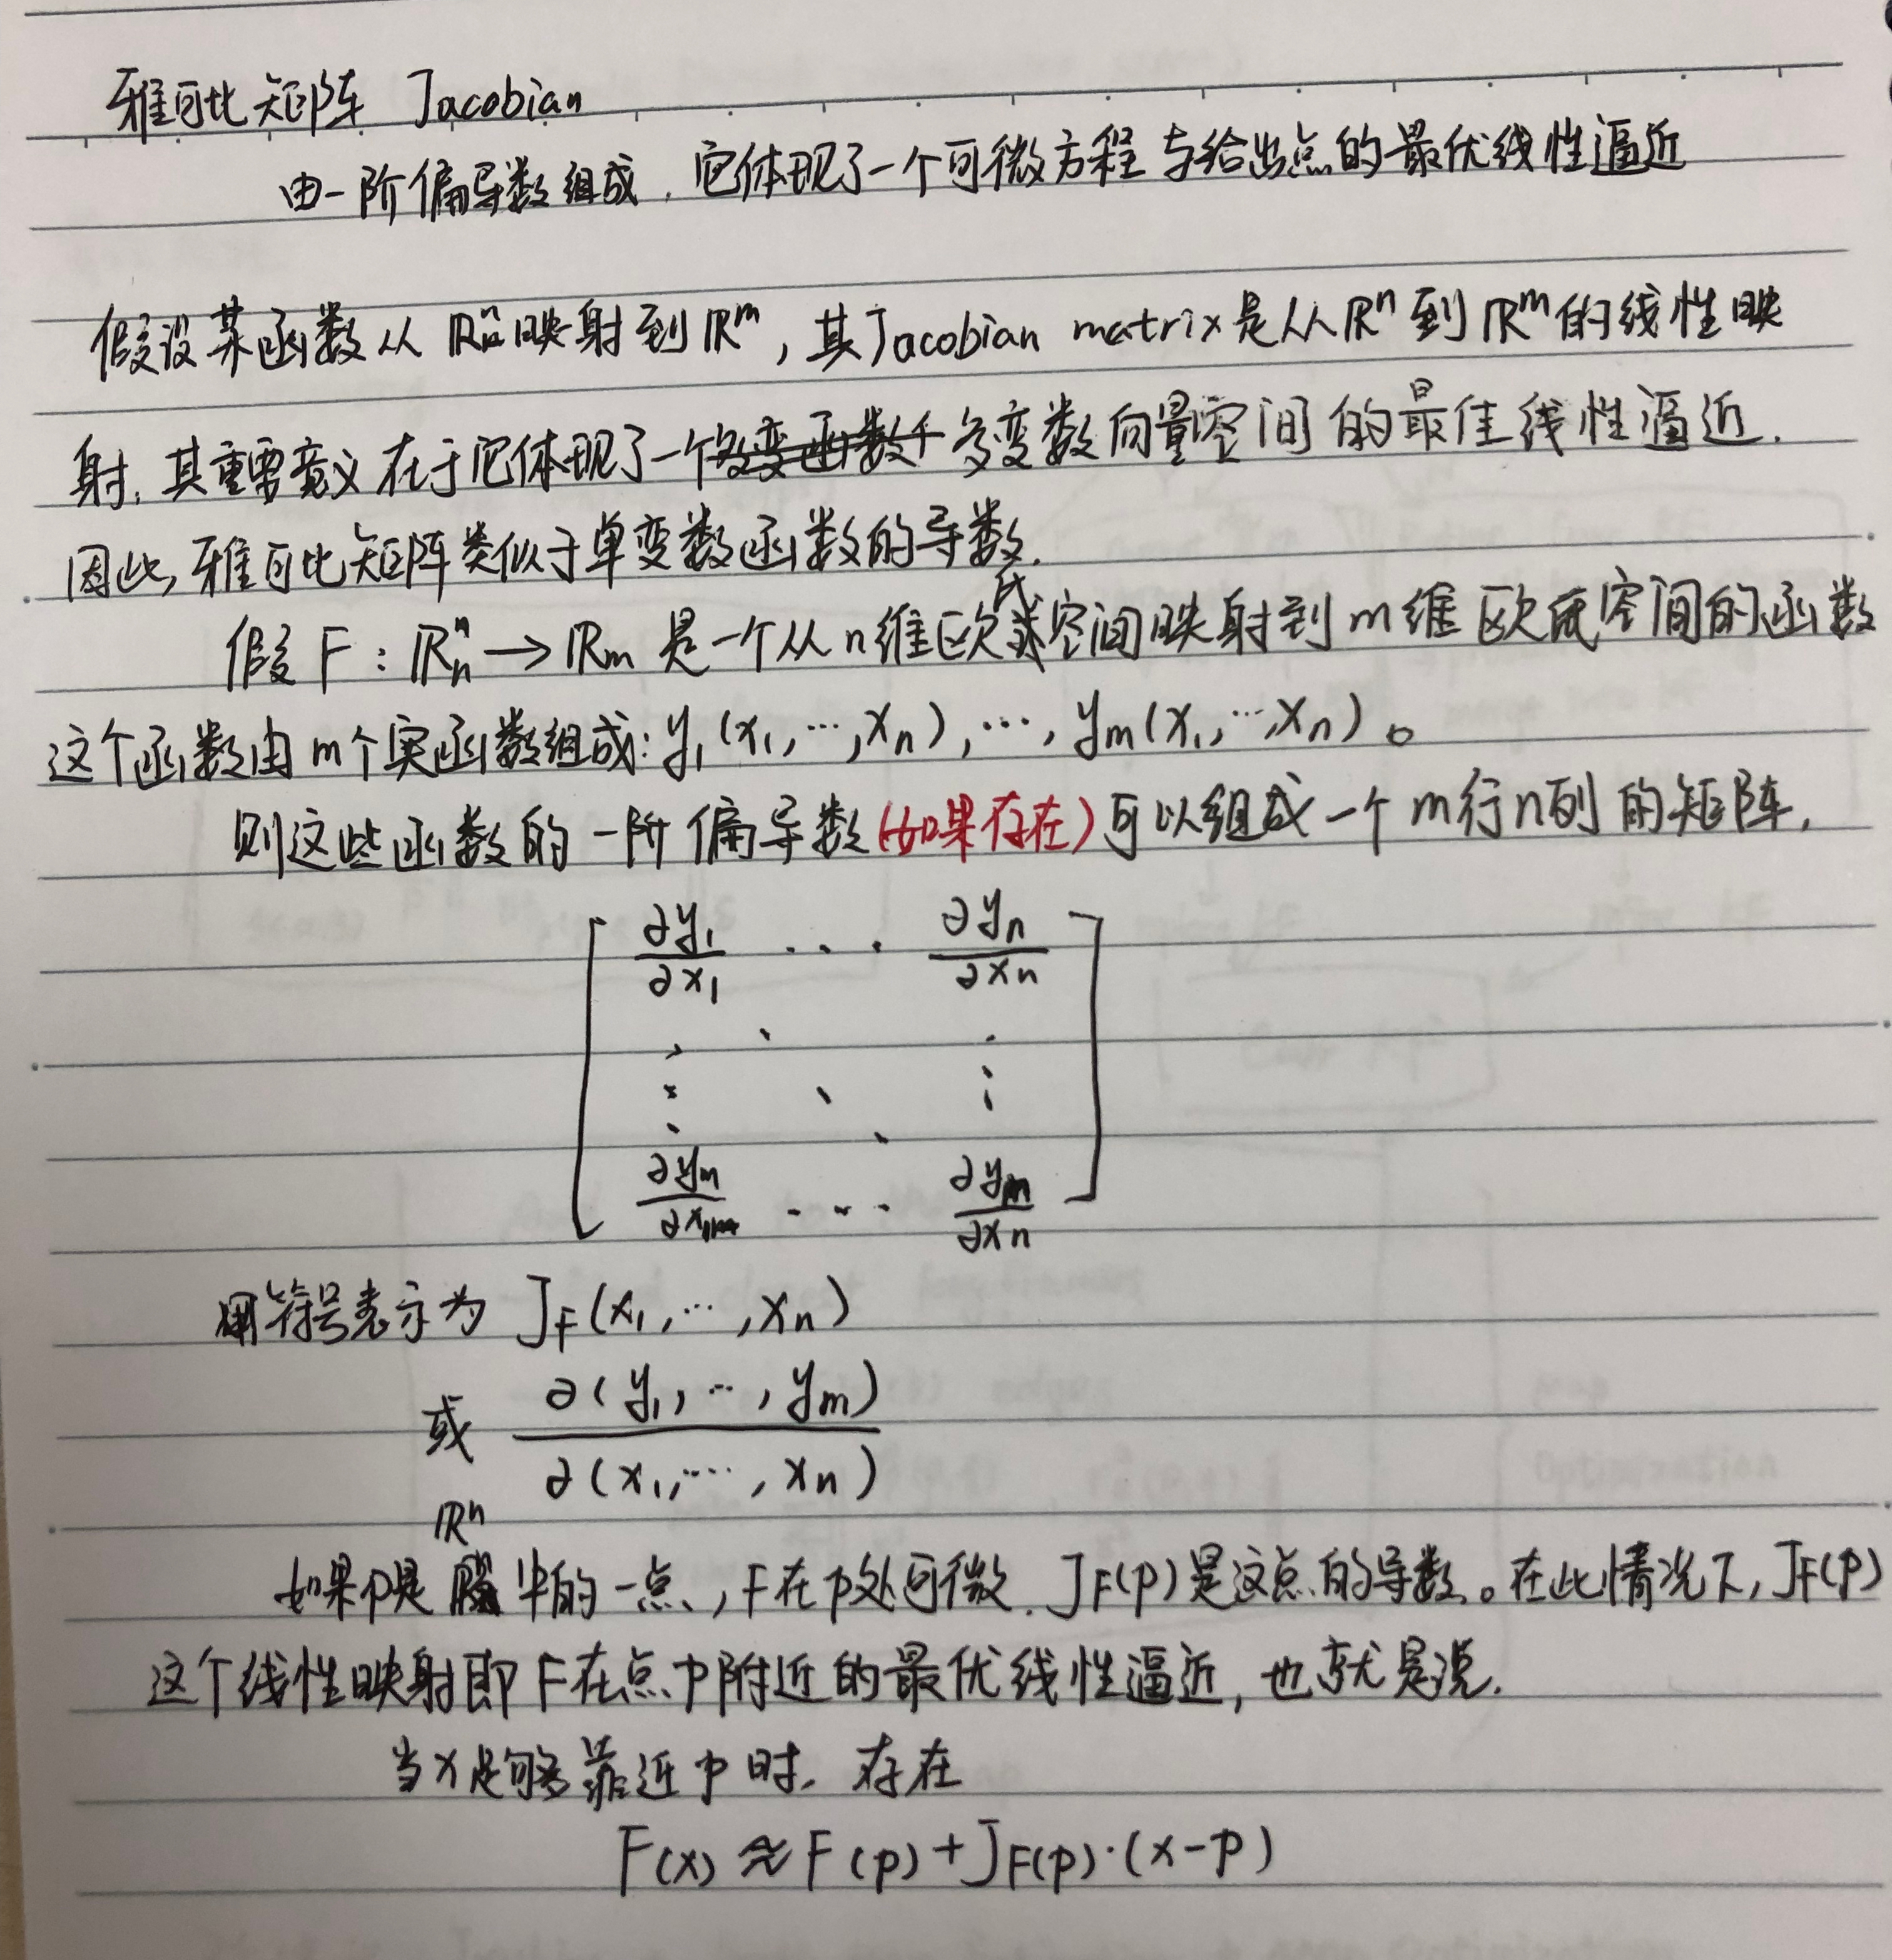 雅可比矩阵 Jacobian
由一阶偏导数组成，它体现了一个可微方程与给出点的最优线性逼近
假设某函数从 ℝⁿ映射到 ℝᵐ，其Jacobian matrix是从ℝⁿ到ℝᵐ的线性映
射，其重要意义在于它体现了一个多变数向量空间的最佳线性逼近.
因此，雅可比矩阵类似于单变数函数的导数.
假设 F : ℝₙⁿ → ℝₘ 是一个从n维欧氏空间映射到m维欧氏空间的函数
这个函数由m个实函数组成: y₁(x₁,…,xₙ),…,yₘ(x₁,…,xₙ)。
则这些函数的一阶偏导数(如果存在)可以组成一个m行n列的矩阵,
[ ∂y₁/∂x₁ ... ∂yₙ/∂xₙ
⋮ ⋱ ⋮
∂yₘ/∂x₁ ... ∂yₘ/∂xₙ ]
用符号表示为 J_F(x₁,…,xₙ)
或 ∂(y₁,…,yₘ)/∂(x₁,…,xₙ)
如果p是ℝⁿ中的一点,F在p处可微.J_F(p)是这点的导数。在此情况下,J_F(p)
这个线性映射即F在点p附近的最优线性逼近,也就是说.
当x足够靠近p时. 存在
F(x) ≈ F(p) + J_F(p)·(x-p)